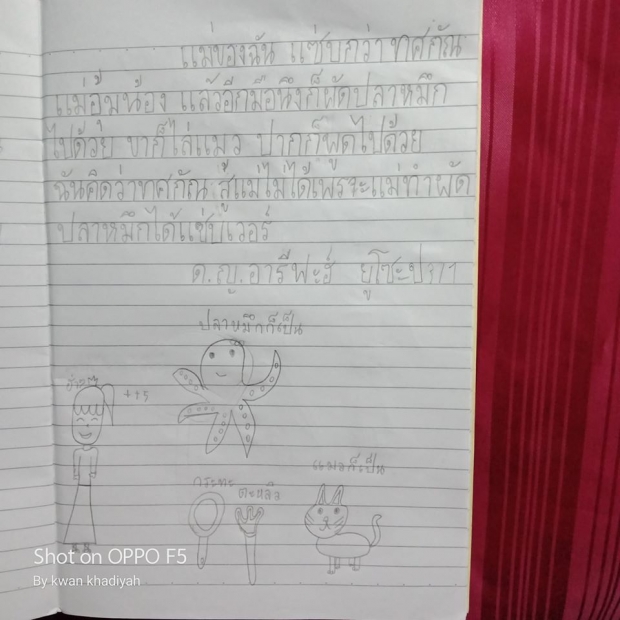 แม่ของฉัน แซ่บกว่าทศกัณ
แม่อุ้มน้อง แล้วอีกมือนึงก็ผัดปลาหมึก
ไปด้วย ขาก็ไล่แมว ปากก็พูดไปด้วย
ฉันคิดว่าทศกัณ สู้แม่ไม่ได้เพราะแม่ทำผัด
ปลาหมึกได้แซ่บเวอร์
ด.ญ.อารีฟะฮ์ ยูโซะ
ปลาหมึกก็เป็น
แมวก็เป็น
กระทะ
ตะหลิว
Shot on OPPO F5
By kwan khadiyah